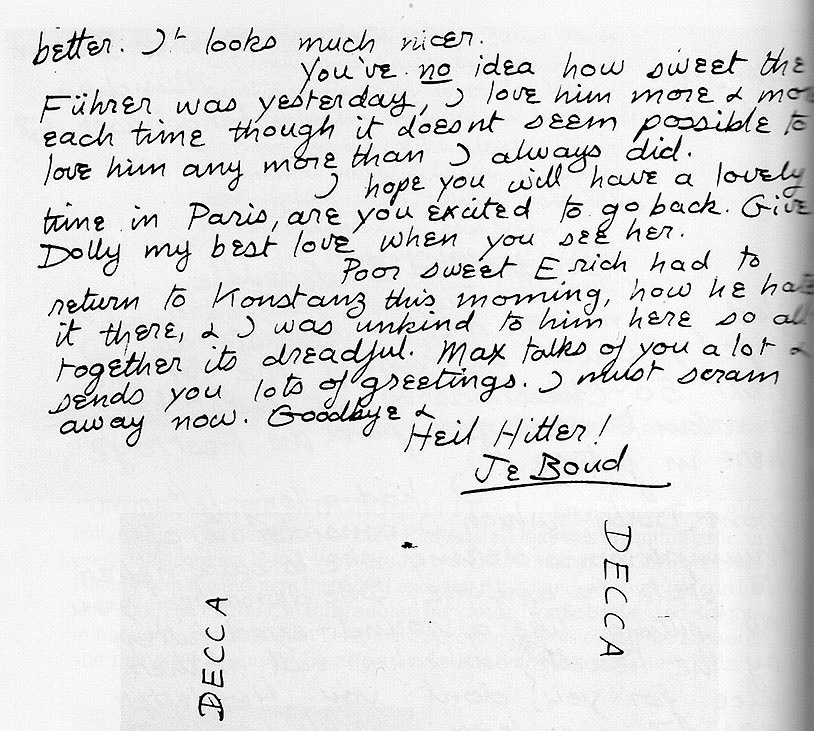 better. It looks much nicer.
You've no idea how sweet the
Führer was yesterday, I love him more & mor
each time though it doesnt seem possible to
love him any more than I always did.
I hope you will have a lovely
time in Paris, are you excited to go back. Give
Dolly my best love when you see her.
Poor sweet Erich had to
return to Konstanz this morning, how he hate
it there, & I was unkind to him here so all
together its dreadful. Max talks of you a lot &
sends you lots of greetings. I must scram
away now. Goodbye &
Heil Hitler!
Je Boud
DECCA
DECCA